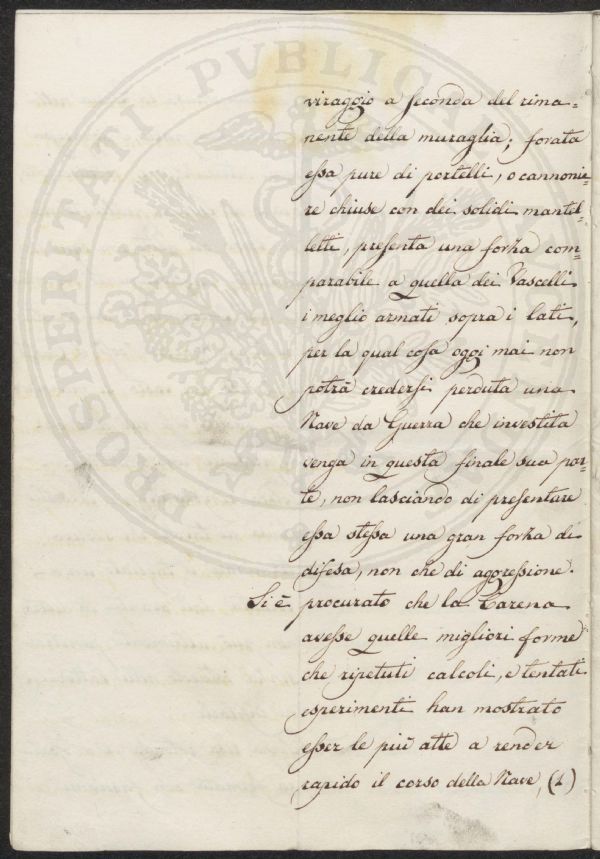 viraggio a seconda del rima=
nente della muraglia; forata
essa pure di portelli, o cannonie=
re chiuse con dei solidi mantel=
letti, presenta una forza com=
parabile a quella dei Vascelli
i meglio armati sopra i lati,
per la qual cosa oggi mai non
potrà credersi perduta una
Nave da Guerra che investita
venga in questa finale sua par=
te, non lasciando di presentare
essa stessa una gran forza di
difesa, non che di aggressione.
Si è procurato che la Carena
avesse quelle migliori forme
che ripetuti calcoli, e tentati
esperimenti han mostrato
esser le più atte a render
rapido il corso della Nave, (1)
PROSPERITATI PUBLICAE